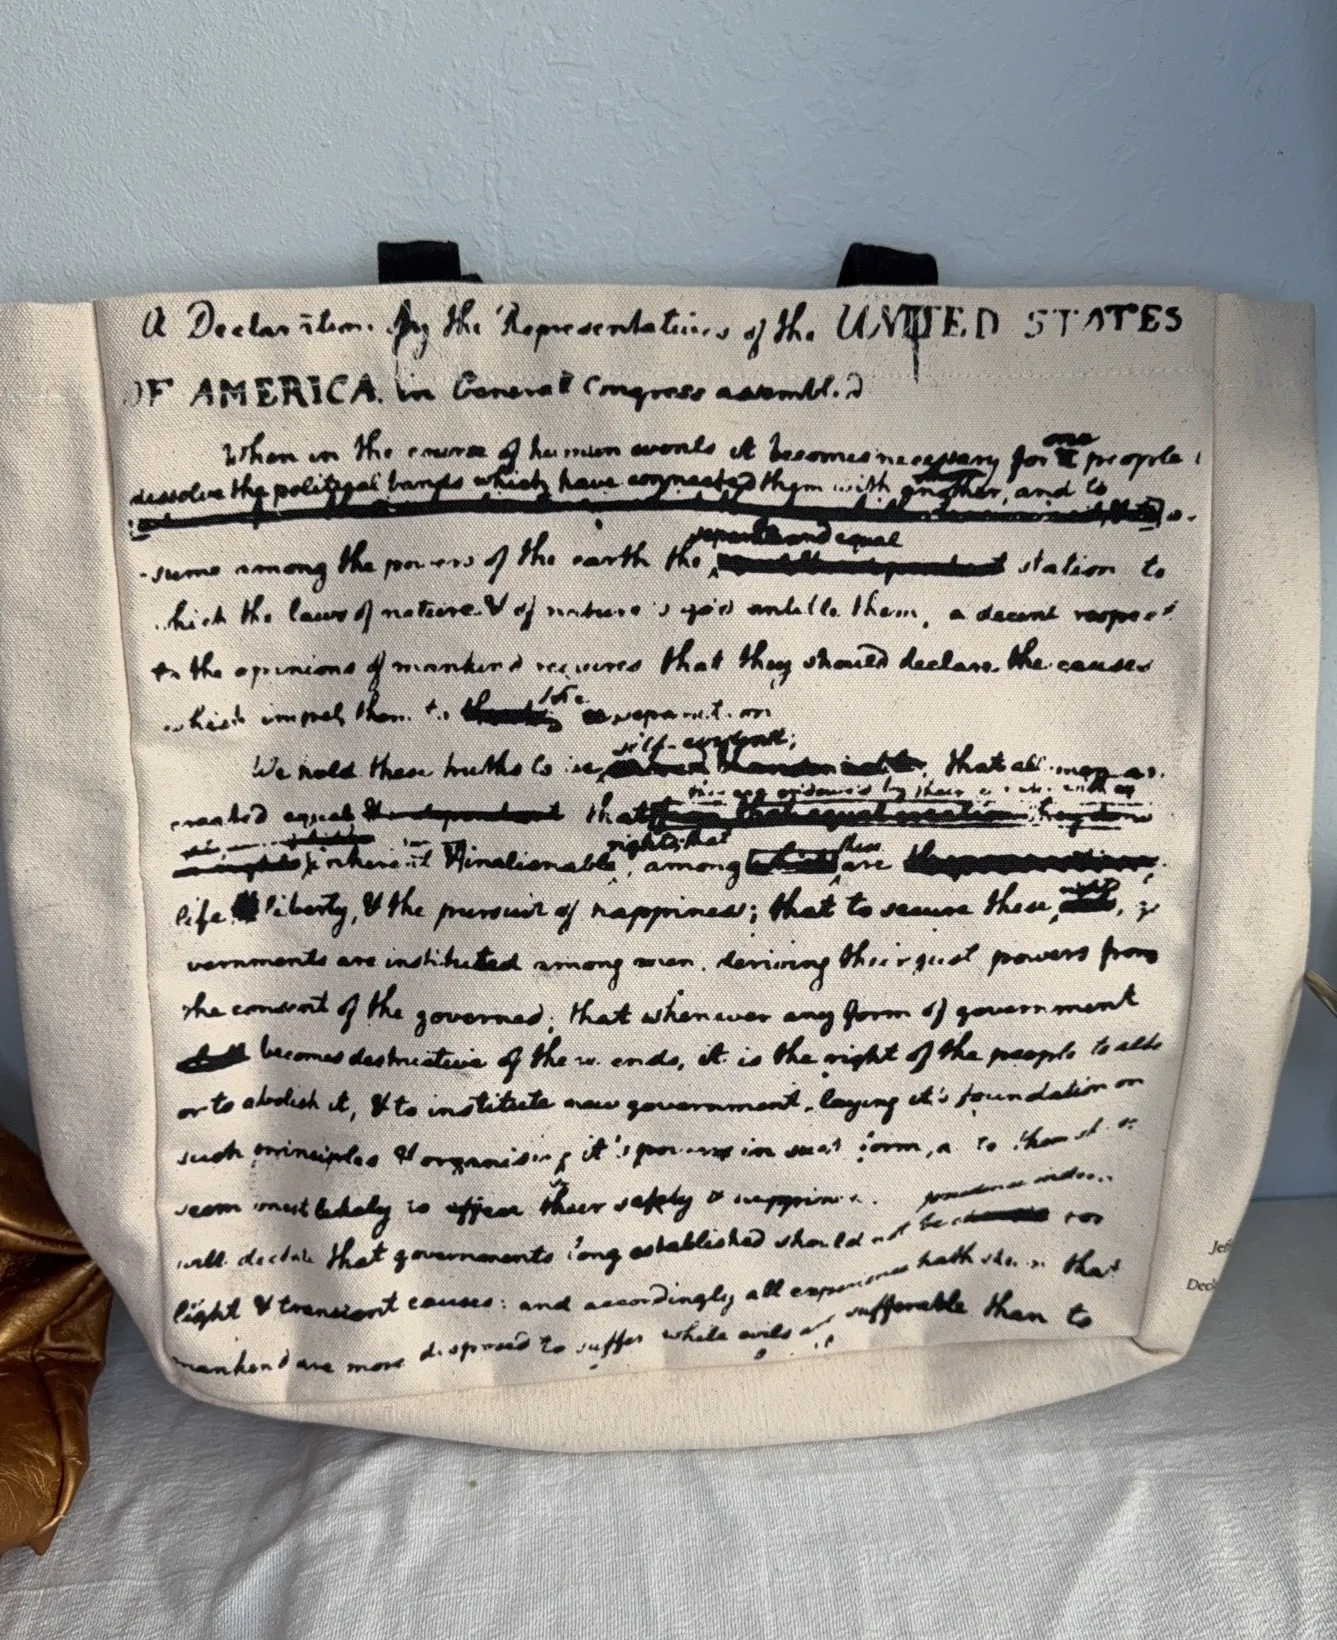 A Declaration by the Representatives of the UNITED STATES
OF AMERICA. in General Congress assembled
When in the course of human events it becomes necessary for one people
dissolve the political bands which have connected them with another, and to
-sume among the powers of the earth the separate and equal station to
which the laws of nature & of nature's god entitle them, a decent respect
to the opinions of mankind requires that they should declare the causes
which impel them to the separation
We hold these truths to be self-evident; that all men are
created equal, that they are endowed by their
inherent & inalienable rights; that among these are
life & liberty, & the pursuit of happiness; that to secure these rights, go
vernments are instituted among men, deriving their just powers from
the consent of the governed; that whenever any form of government
becomes destructive of these ends, it is the right of the people to alter
or to abolish it, & to institute new government, laying it's foundation on
such principles & organising it's powers in such form, as to them shall
seem most likely to effect their safety & happiness. prudence indeed
will dictate that governments long established should not be for
light & transient causes: and accordingly all experience hath shewn that
mankind are more disposed to suffer while evils are sufferable than to
Jef
Decl